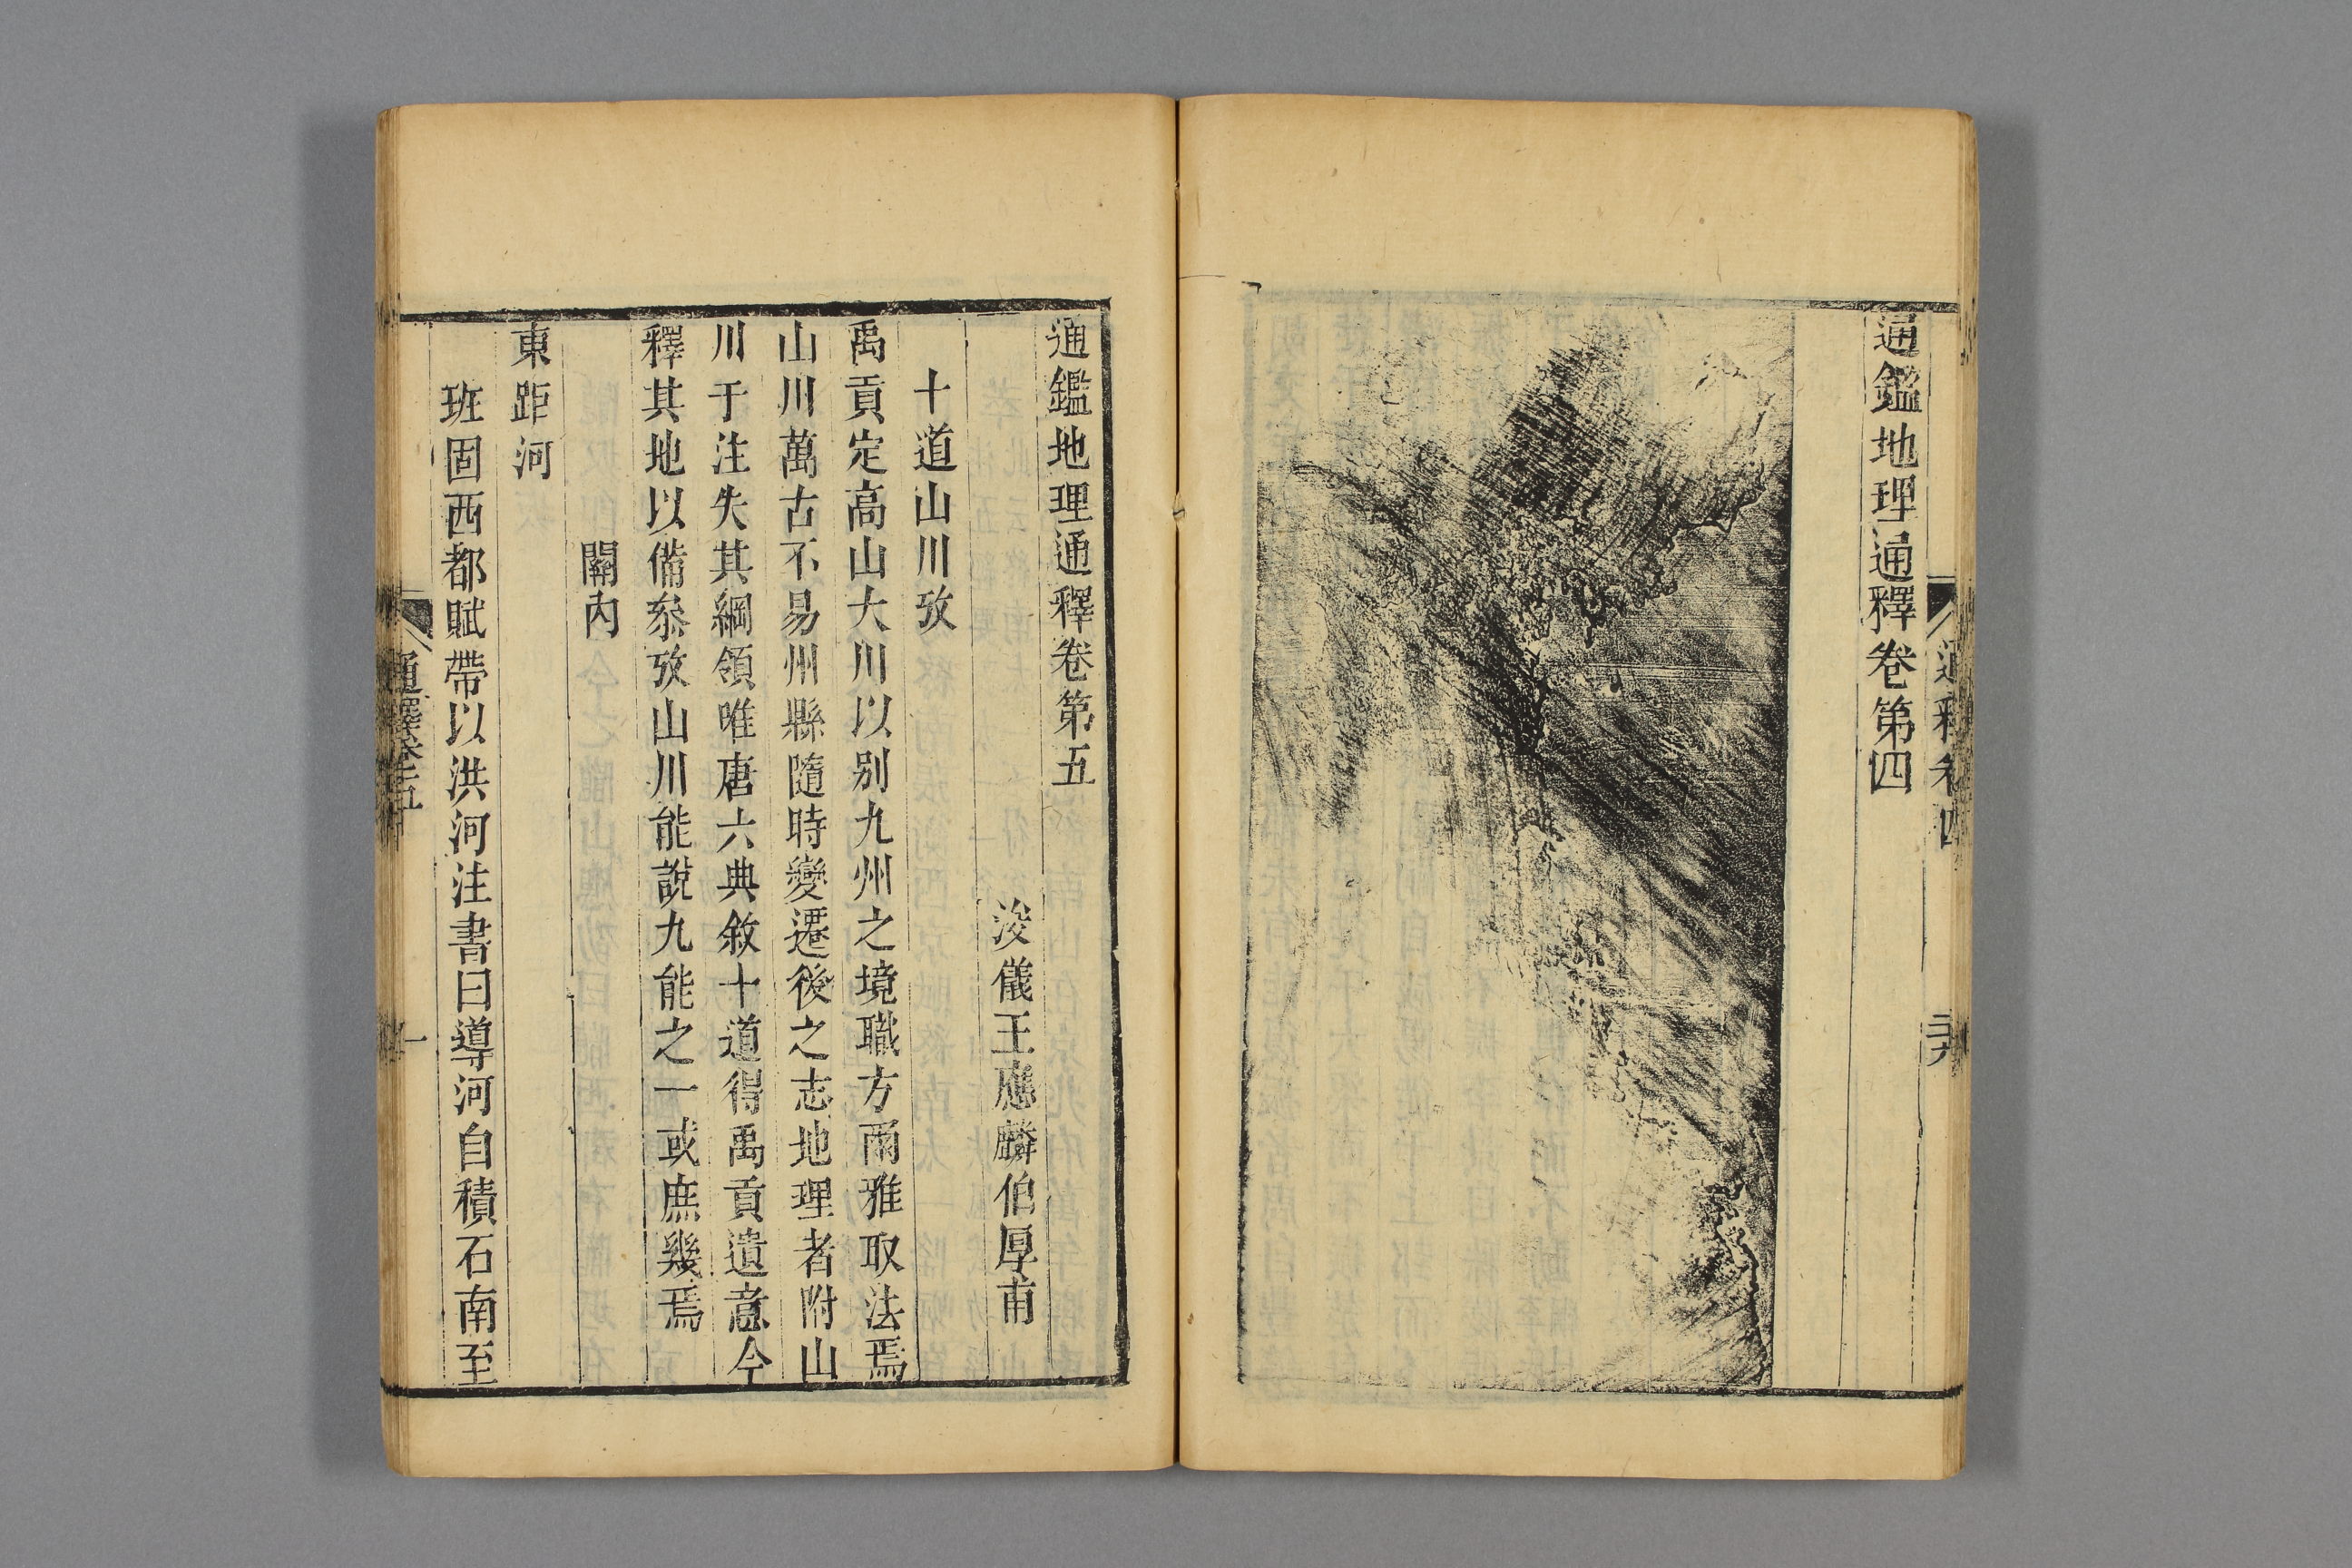 通釋卷四
二十九
通鑑地理通釋卷第四
通鑑地理通釋卷第五
浚儀王應麟伯厚甫
十道山川攷
禹貢定高山大川以別九州之境職方爾雅取法焉
山川萬古不易州縣隨時變遷後之志地理者附山
川于注失其綱領唯唐六典敘十道得禹貢遺意今
釋其地以備叅攷山川能說九能之一或庶幾焉
關內
東距河
班固西都賦帶以洪河注書曰導河自積石南至
通釋卷五
一